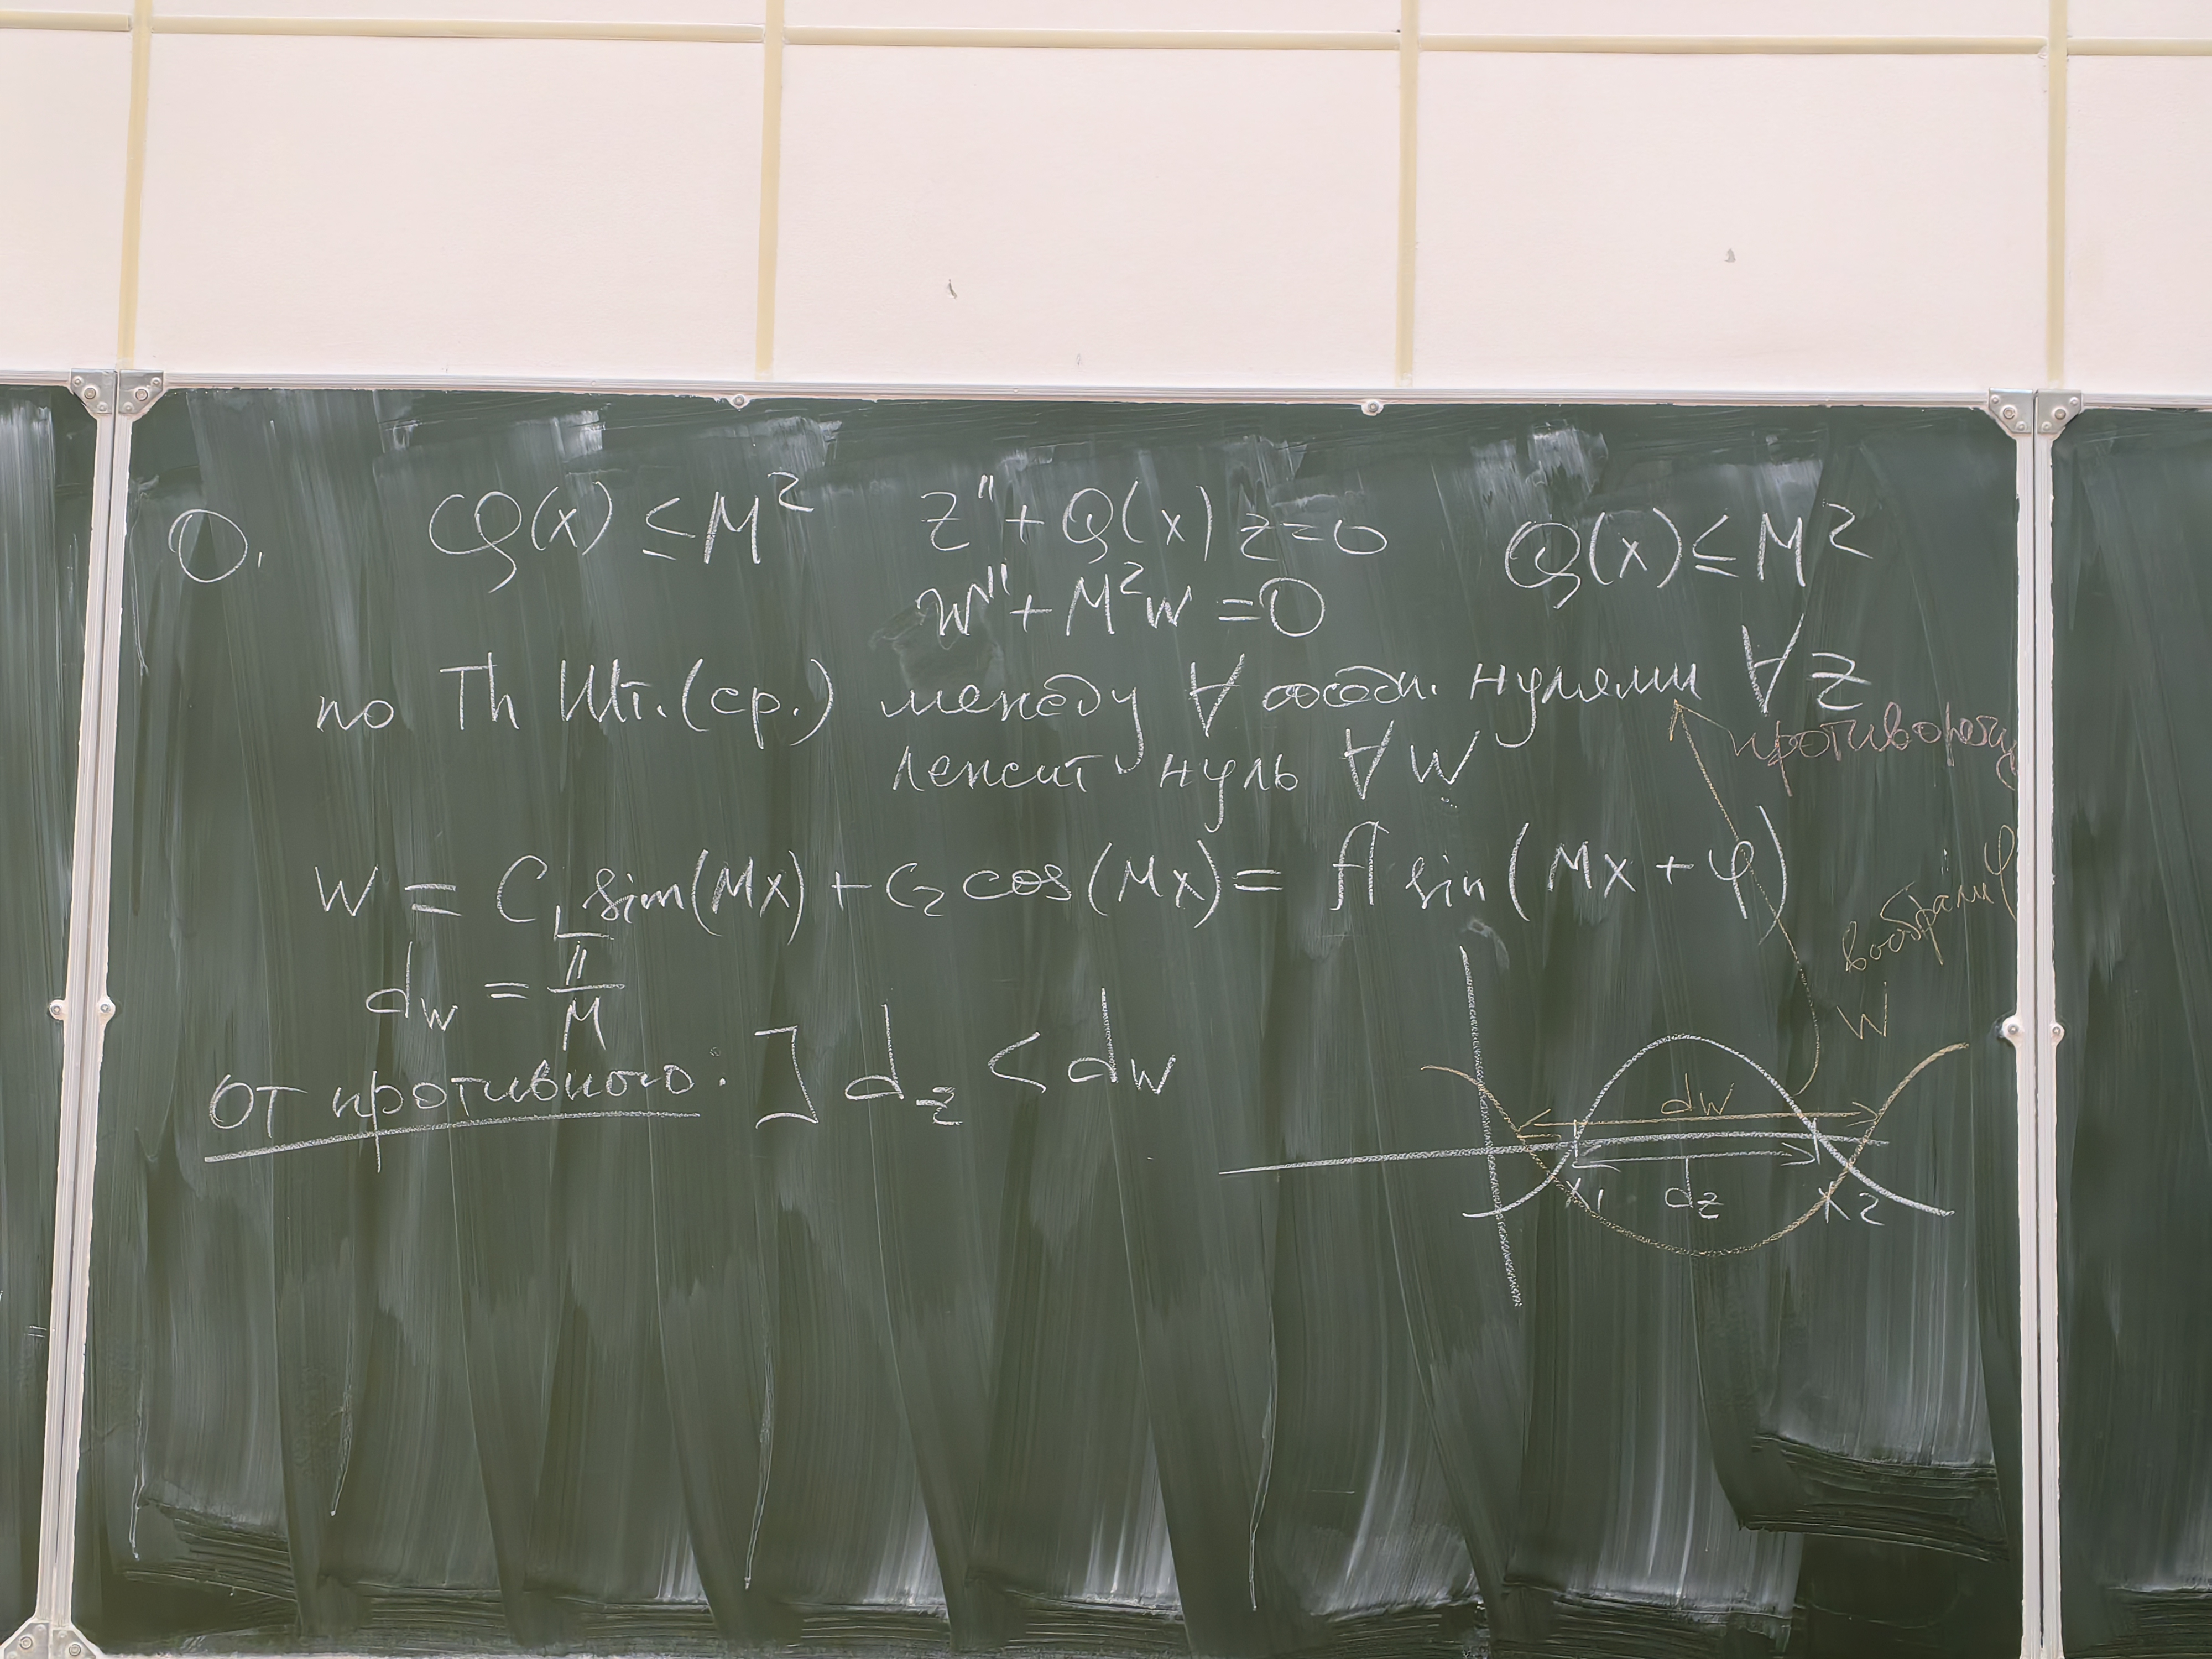 0. Q(x) ≤ M² z'' + Q(x) z = 0 Q(x) ≤ M²
w'' + M²w = 0
по Th Шт. (ср.) между ∀ соседн. нулями ∀ z
лежит нуль ∀ w
противореч
w = C₁ sin(Mx) + C₂ cos(Mx) = A sin(Mx + φ)
d_w = π/M
w
От противного: ] d_z < d_w
d_w
x₁ d_z x₂